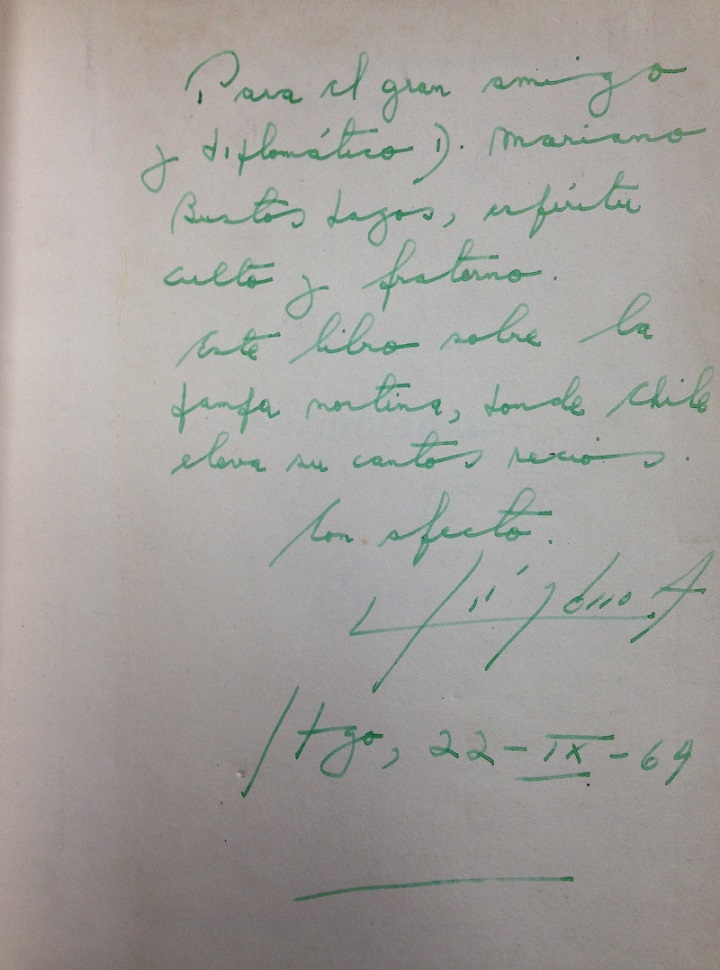 Para el gran amigo
y diplomático D. Mariano
Bustos Lagos, espíritu
culto y fraterno.
Este libro sobre la
pampa nortina, donde Chile
eleva su cantos recios.
Con afecto.
Stgo, 22-IX-69